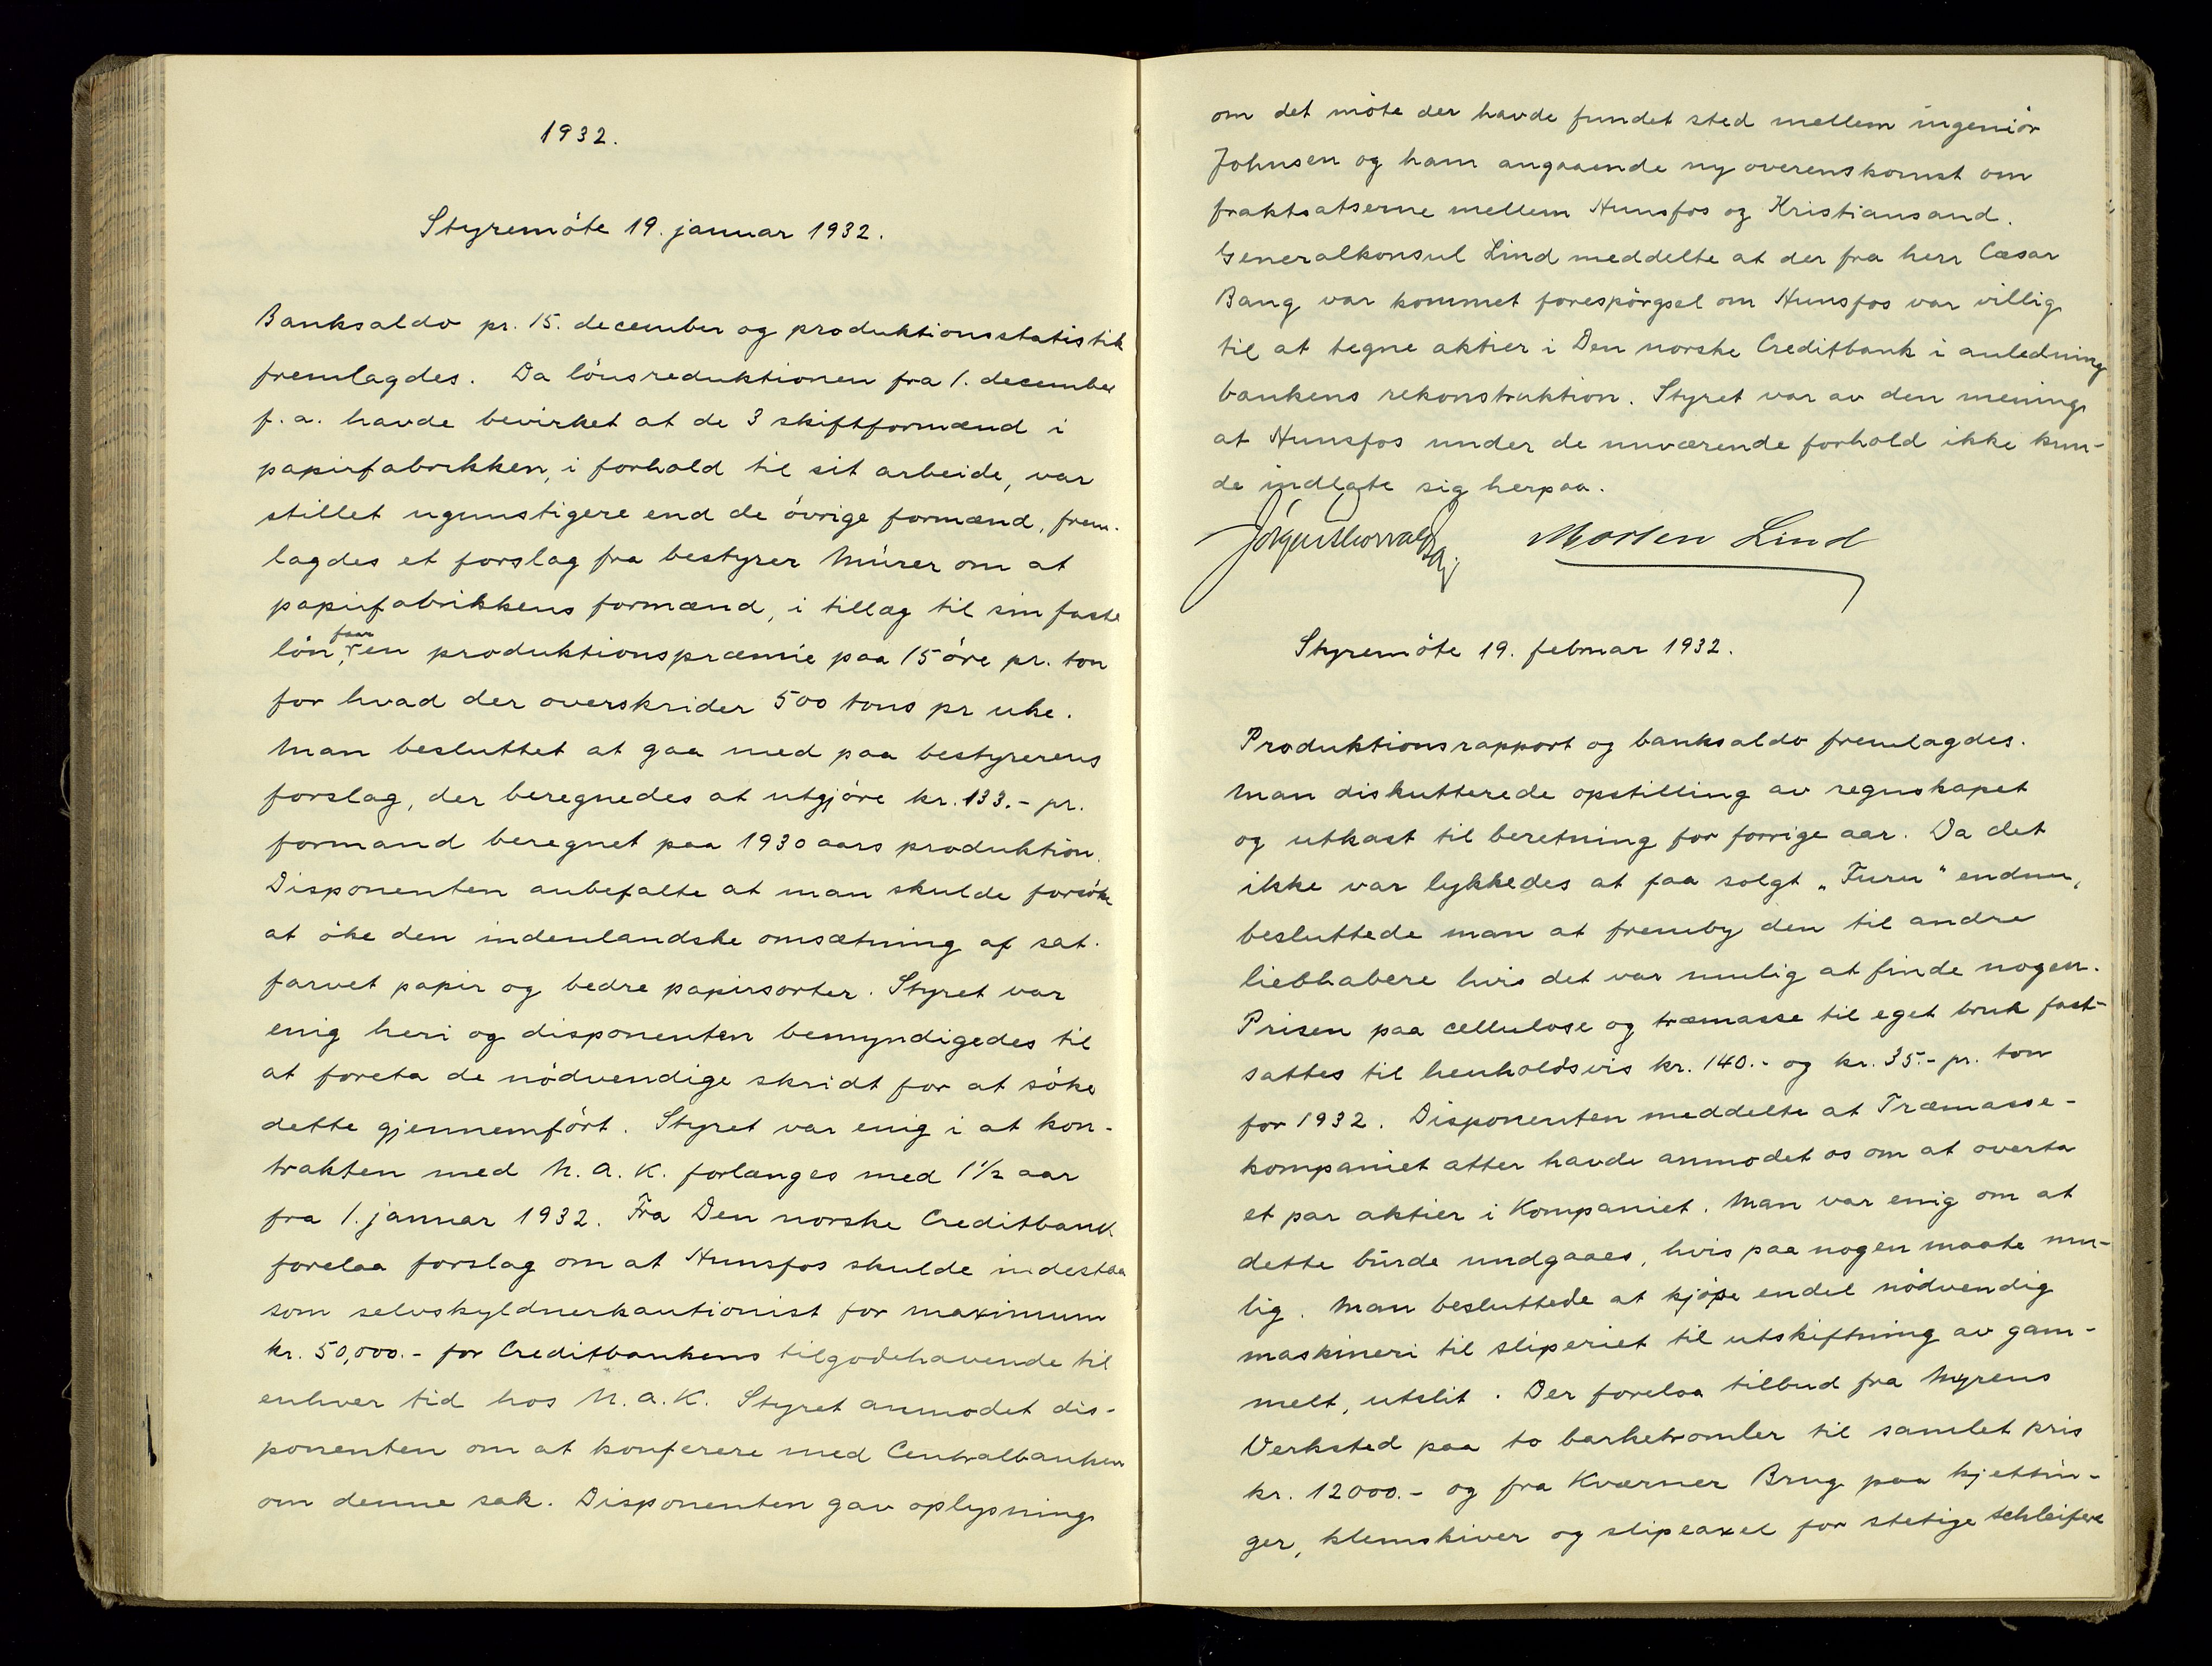 1932.
Styremöte 19. januar 1932.
Banksaldo pr. 15. december og produktionsstatistik
fremlagdes. Da lönsreduktionen fra 1. december
f. a. havde bevirket at de 3 skiftformænd i
papirfabrikken, i forhold til sit arbeide, var
stillet ugunstigere end de övrige formænd, frem-
lagdes et forslag fra bestyrer Mürer om at
papirfabrikkens formænd, i tillæg til sin faste
lön, faar en produktionspræmie paa 15 öre pr. ton
for hvad der overskrider 500 tons pr uke.
Man besluttet at gaa med paa bestyrerens
forslag, der beregnedes at utgjöre kr. 133.- pr.
formand beregnet paa 1930 aars produktion.
Disponenten anbefalte at man skulde forsöke
at öke den indenlandske omsætning af sat.
farvet papir og bedre papirsorter. Styret var
enig heri og disponenten bemyndigedes til
at foreta de nödvendige skridt for at söke
dette gjennemfört. Styret var enig i at kon-
trakten med N. A. K. forlænges med 1½ aar
fra 1. januar 1932. Fra Den norske Creditbank
forelaa forslag om at Hunsfos skulde indestaa
som selvskyldnerkautionist for maximum
kr. 50,000.- for Creditbankens tilgodehavende til
enhver tid hos N. A. K. Styret anmodet dis-
ponenten om at konferere med Centralbanken
om denne sak. Disponenten gav oplysning
om det möte der havde fundet sted mellem ingeniör
Johnsen og ham angaaende ny overenskomst om
fraktsatserne mellem Hunsfos og Kristiansand.
Generalkonsul Lind meddelte at der fra herr Cæsar
Bang var kommet forespörgsel om Hunsfos var villig
til at tegne aktier i Den norske Creditbank i anledning
bankens rekonstruktion. Styret var av den mening
at Hunsfos under de nuværende forhold ikke kun-
de indlate sig herpaa.
Morten Lind
Styremöte 19. februar 1932.
Produktionsrapport og banksaldo fremlagdes.
Man diskutterede opstilling av regnskapet
og utkast til beretning for forrige aar. Da det
ikke var lykkedes at faa solgt „Furu" endnu,
besluttede man at fremby den til andre
liebhabere hvis det var mulig at finde nogen.
Prisen paa cellulose og træmasse til eget bruk fast-
sattes til henholdsvis kr. 140.- og kr. 35.- pr. ton
for 1932. Disponenten meddelte at Træmasse-
kompaniet atter havde anmodet os om at overta
et par aktier i Kompaniet. Man var enig om at
dette burde undgaaes, hvis paa nogen maate mu-
lig. Man besluttede at kjöpe endel nödvendig
maskineri til sliperiet til utskiftning av gam-
melt, utslit. Der forelaa tilbud fra Myrens
Verksted paa to barketromler til samlet pris
kr. 12000.- og fra Kværner Brug paa kjettin-
ger, klemskiver og slipeaxel for stetige schleifere